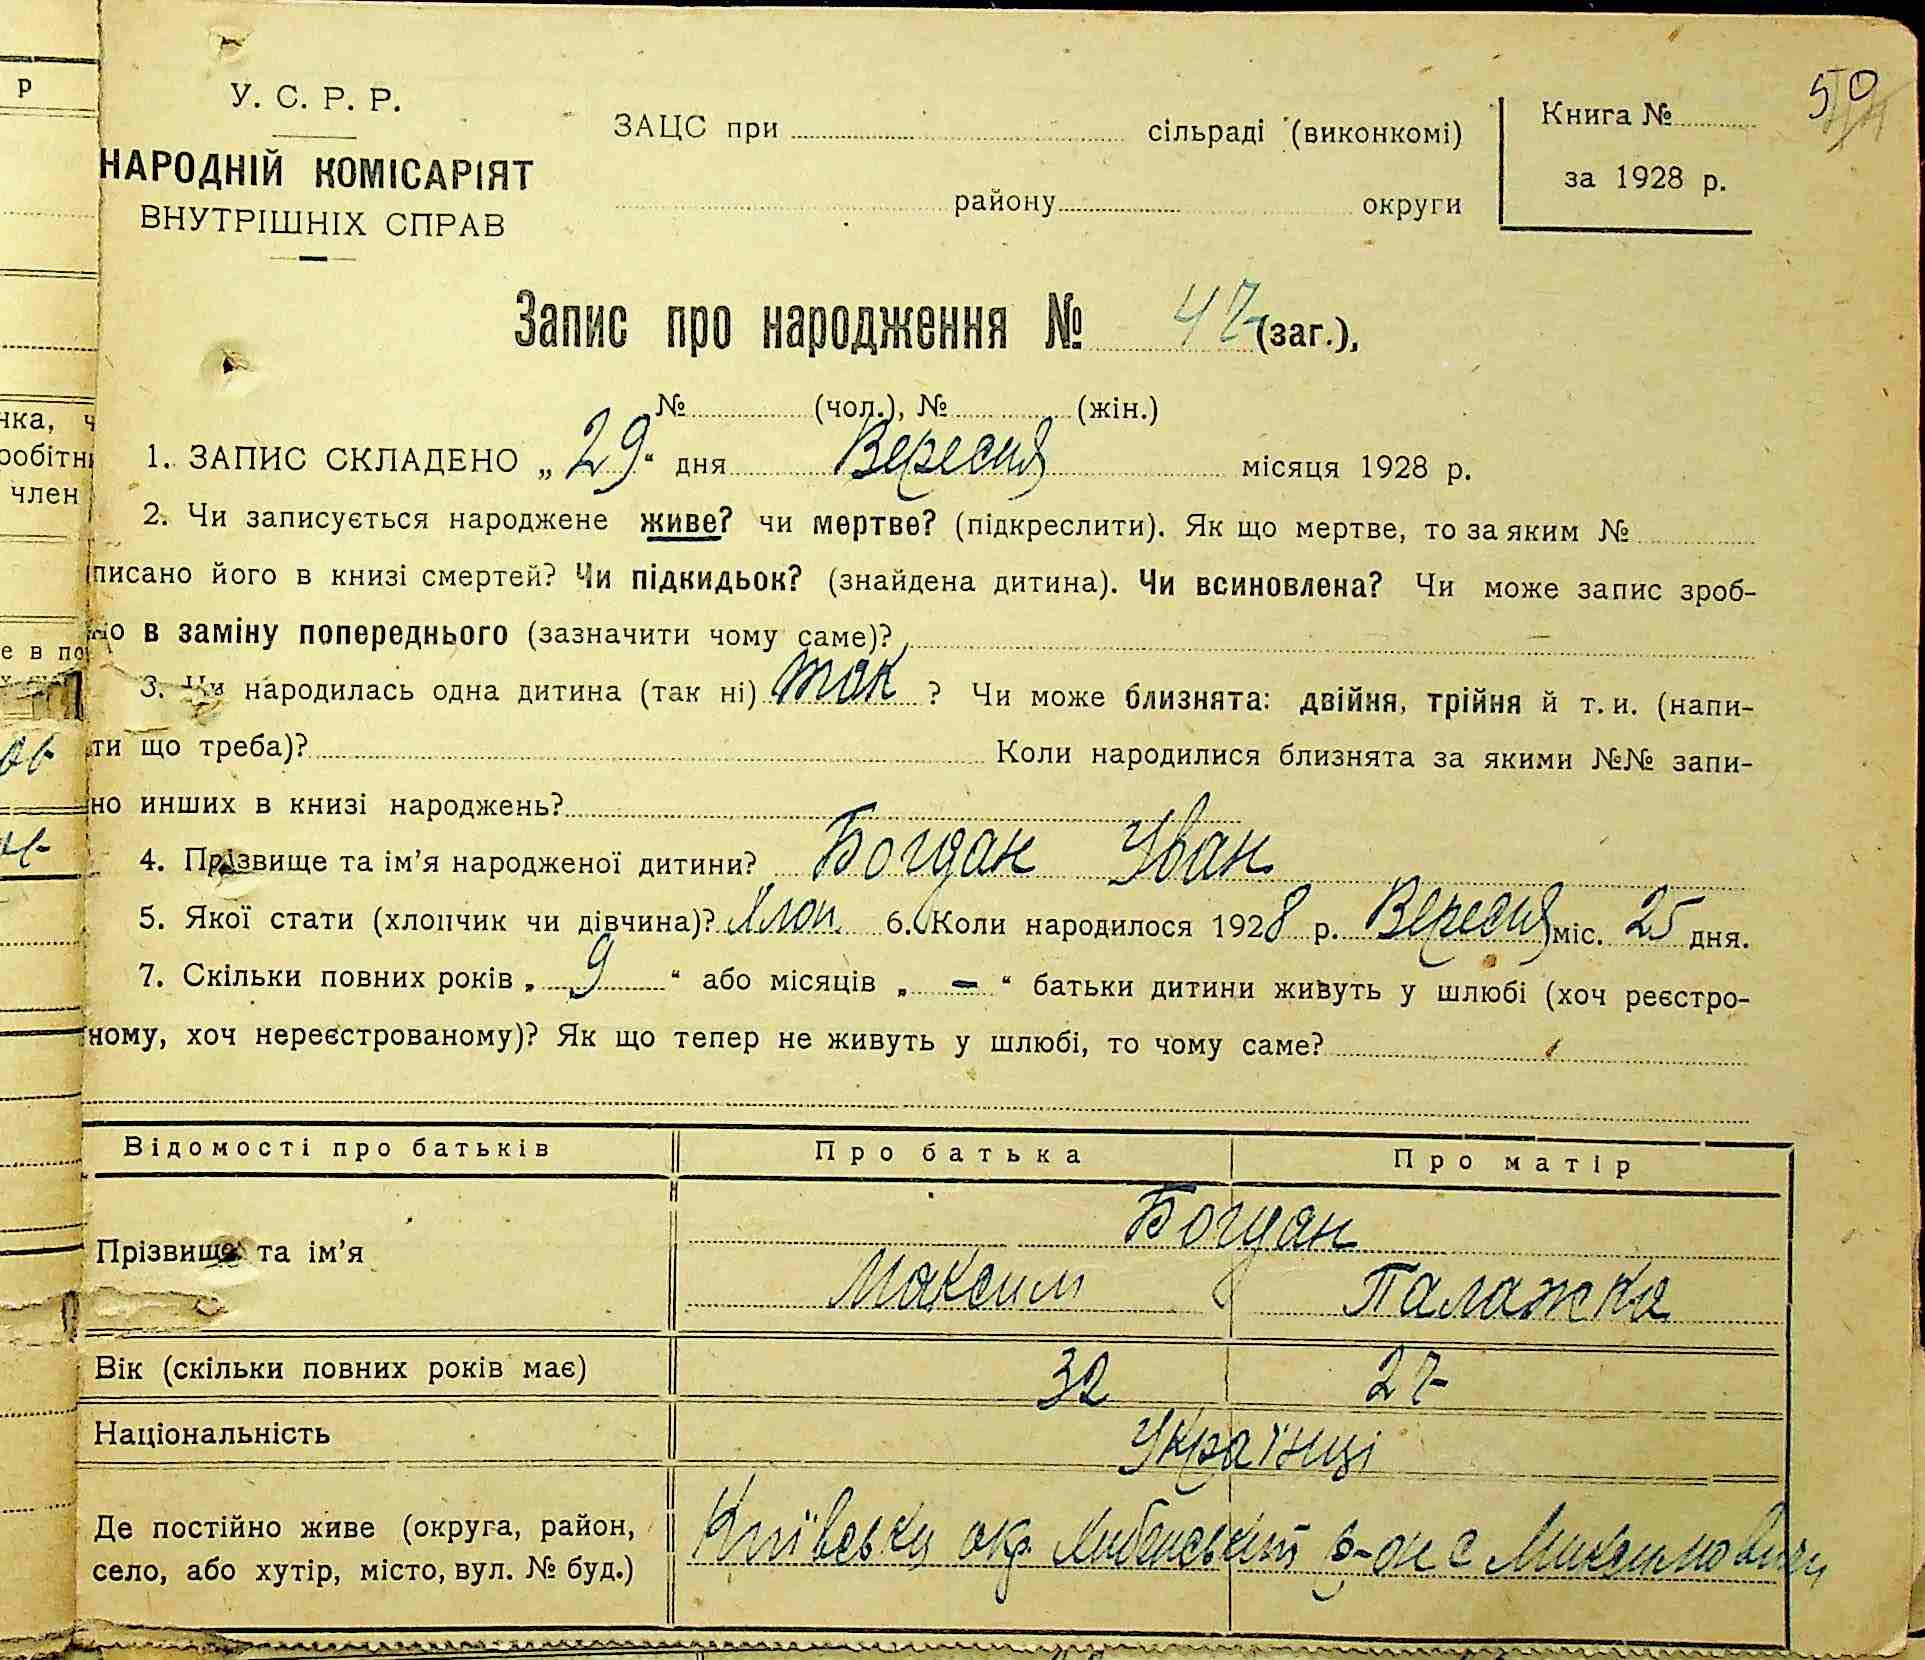 р
50
У. С. Р. Р.
НАРОДНІЙ КОМІСАРІЯТ
ВНУТРІШНІХ СПРАВ
ЗАЦС при сільраді (виконкомі)
району округи
Книга №
за 1928 р.
Запис про народження № 47 (заг.),
№ (чол.), № (жін.)
1. ЗАПИС СКЛАДЕНО „29“ дня Вересня місяця 1928 р.
2. Чи записується народжене живе? чи мертве? (підкреслити). Як що мертве, то за яким №
писано його в книзі смертей? Чи підкидьок? (знайдена дитина). Чи всиновлена? Чи може запис зроб-
но в заміну попереднього (зазначити чому саме)?
3. Чи народилась одна дитина (так ні) так ? Чи може близнята: двійня, трійня й т. и. (напи-
ти що треба)? Коли народилися близнята за якими №№ запи-
но инших в книзі народжень?
4. Прізвище та ім’я народженої дитини? Богдан Іван
5. Якої стати (хлопчик чи дівчина)? Хлоп. 6. Коли народилося 1928 р. Вересня міс. 25 дня.
7. Скільки повних років „ 9 “ або місяців „ – “ батьки дитини живуть у шлюбі (хоч реєстро-
ному, хоч нереєстрованому)? Як що тепер не живуть у шлюбі, то чому саме?
Відомості про батьків Про батька Про матір
Богдан
Прізвище та ім’я
Максим Палажка
Вік (скільки повних років має) 32 27
Національність Українці
Де постійно живе (округа, район,
село, або хутір, місто, вул. № буд.)
Київська окр. р-он с Максимовичи